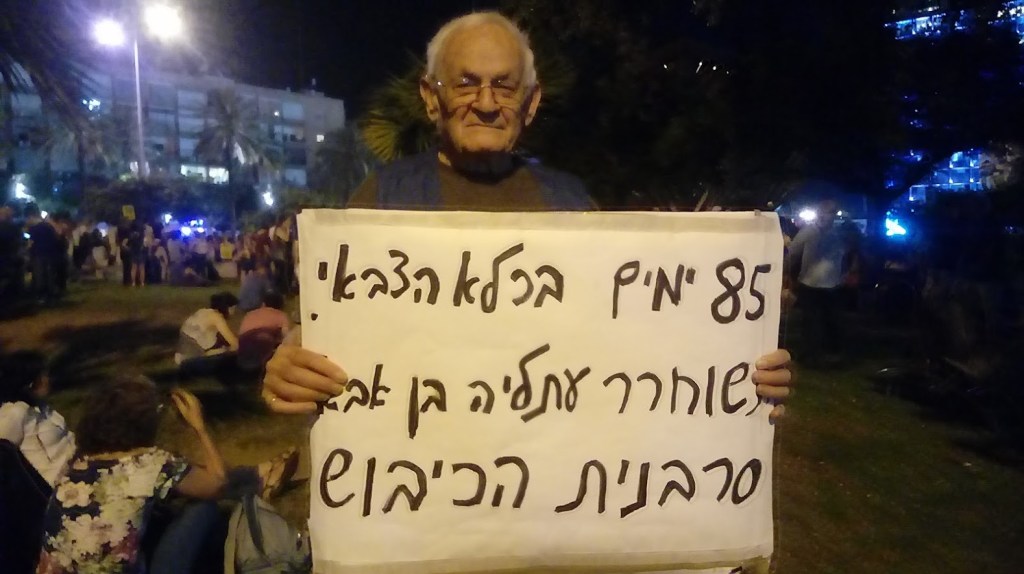 85 ימים בכלא הצבאי!
תשוחרר עתליה בן אבא
סרבנית הכיבוש